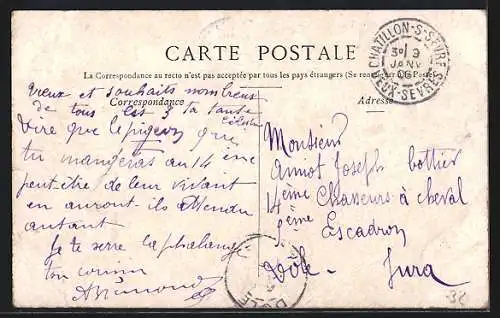 CARTE POSTALE
La Correspondance au recto n'est pas acceptée par tous les pays étrangers (Se
Correspondance
Adresse
CHATILLON-S-SÈVRE
JANV
DEUX-SEVRES
Vœux et souhaits nombreux
de tous ta tante
Célestine
dire que le pigeon que
tu mangeras au 14 ème
peut être de leur vivant
en auront ils
autant
Je te serre la phalange
ton cousin
Monsieur
Amiot Joseph bottier
14ème Chasseurs à cheval
5ème Escadron
Dôle - Jura